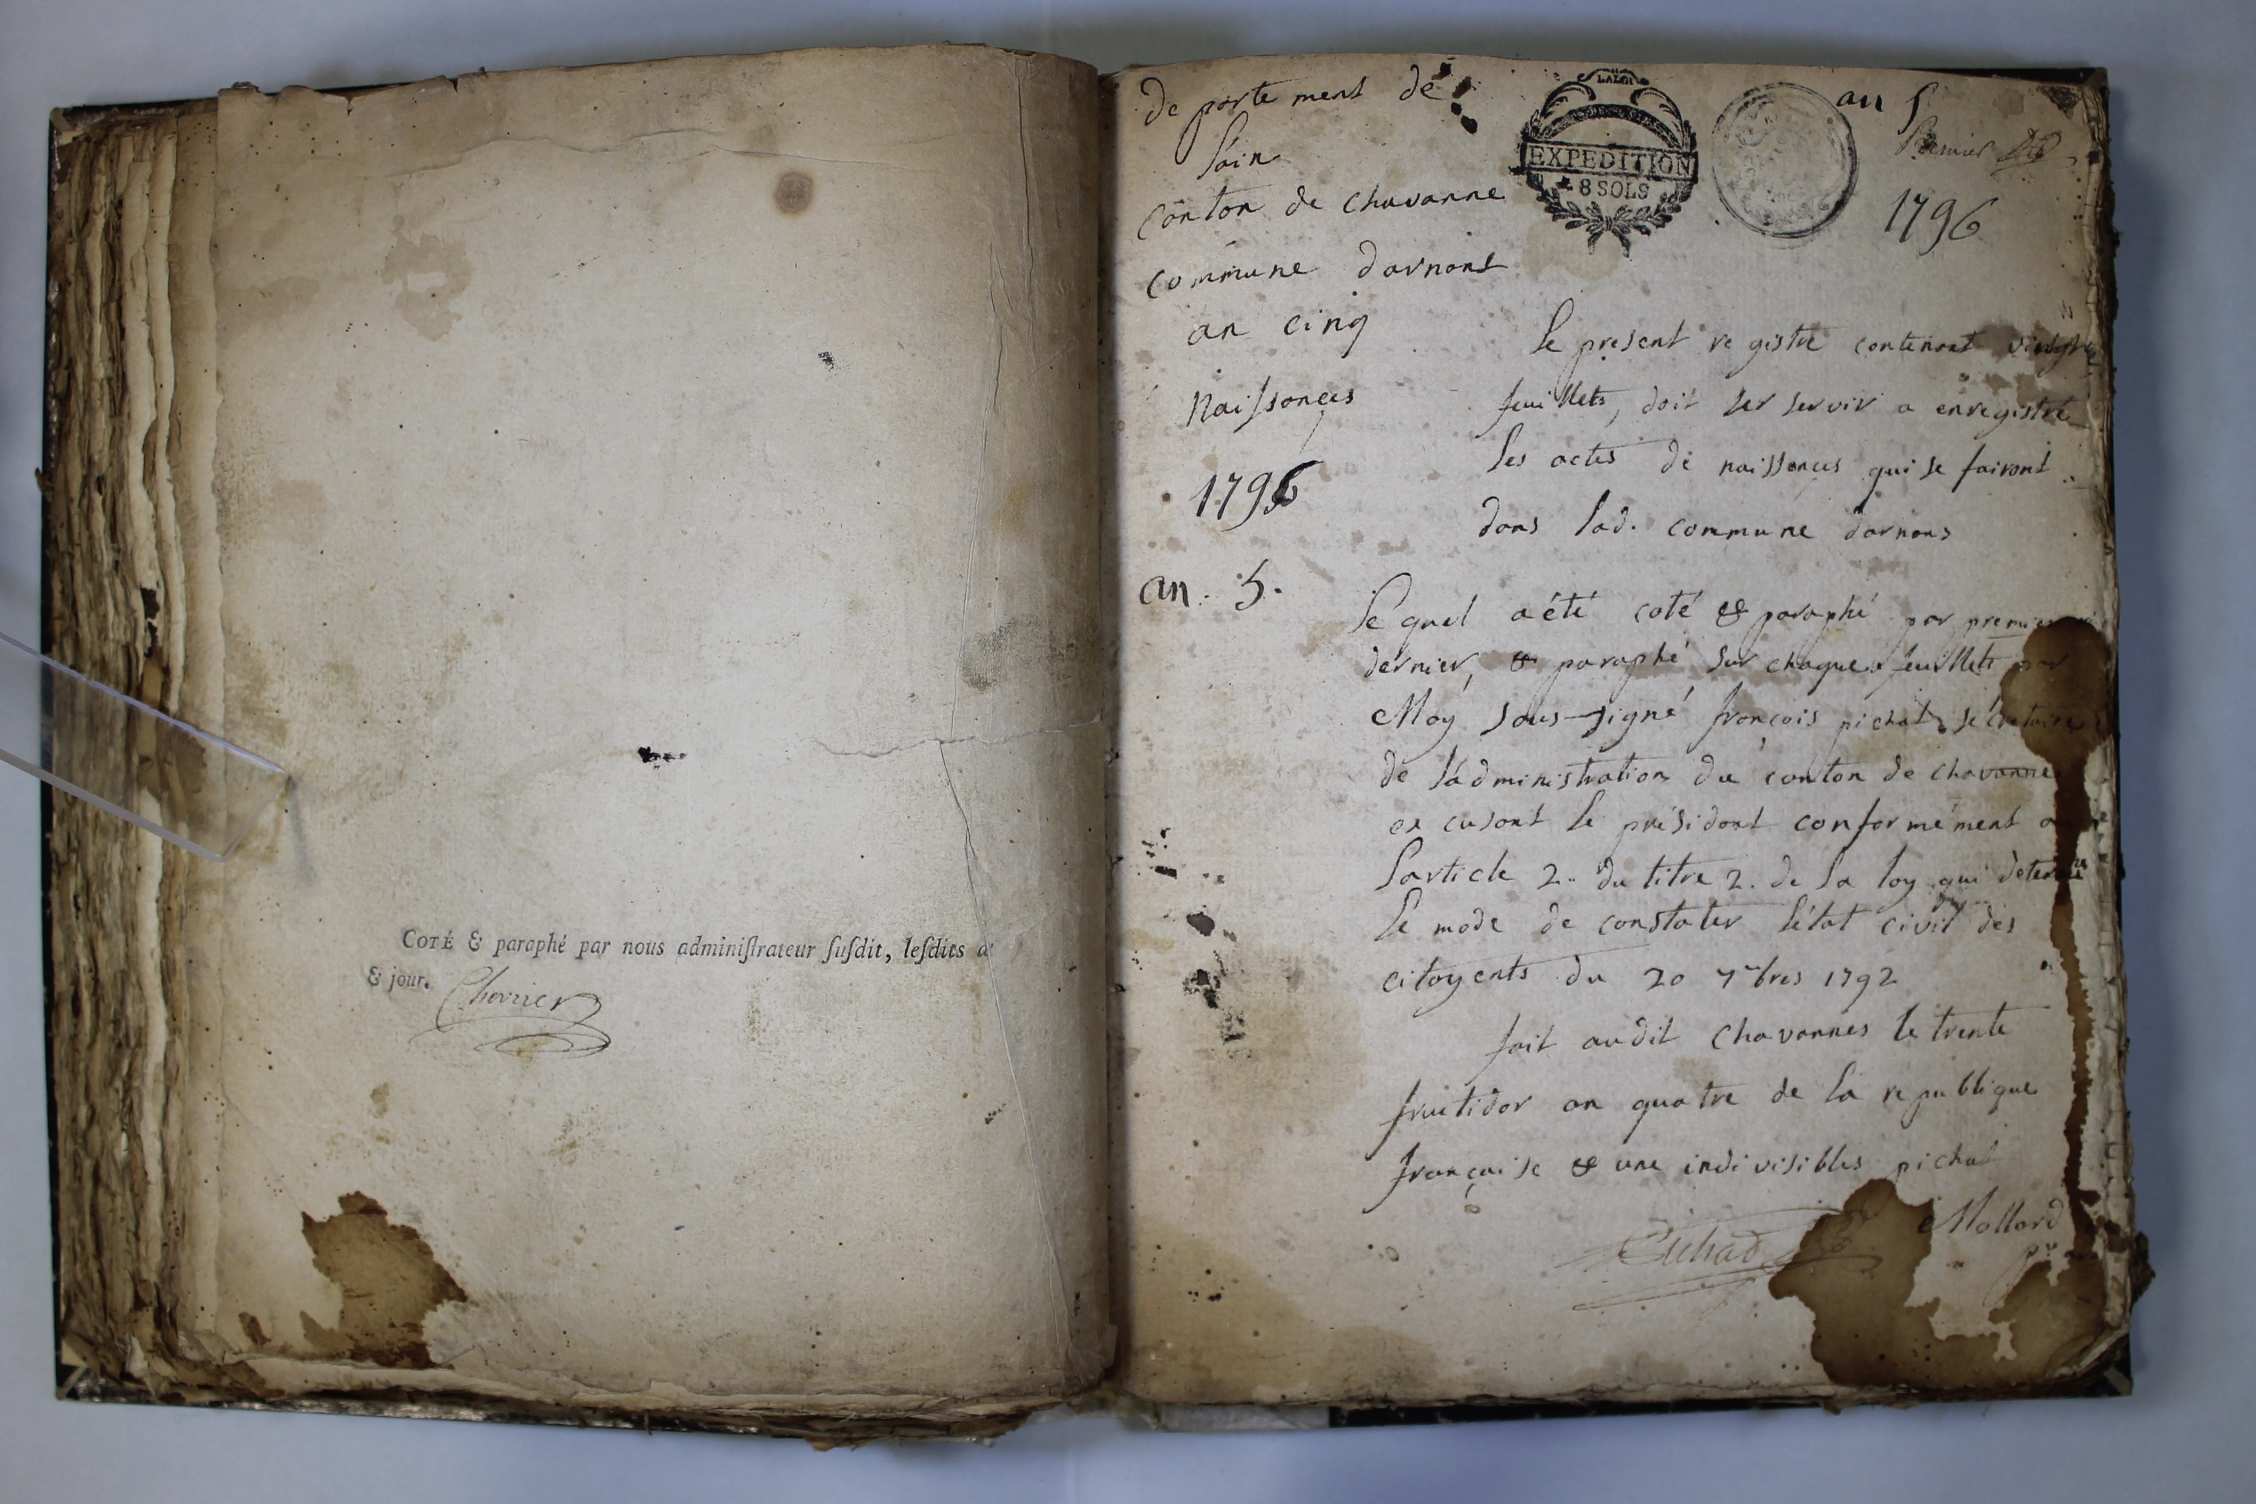 COTÉ & paraphé par nous administrateur susdit, lesdits
& jour. Chevrier
de parte ment de
lain
canton de chavanne
commune darnans
an cinq
Naissances
1796
an. 5.
LA LOI
EXPEDITION
8 SOLS
an 5
Premier
1796
le present re gistre contenant
feuillets, doit ser servir a enregistré
les actes de naissances qui se fairont
dans lad. commune darnans
le quel a été coté & paraphé par premier
dernier, & paraphé sur chaque feuillets par
Moy sous-signé françois pichat secretaire
de l'administration du canton de chavanne
en cusant le présidant conformément a
l'article 2.. du titre 2. de la loy qui determine
le mode de constater l'état civil des
citoyents du 20 7bres 1792
fait audit chavannes le trente
fructidor an quatre de la republique
française & une indivisibles pichat
Mollard
Pichat